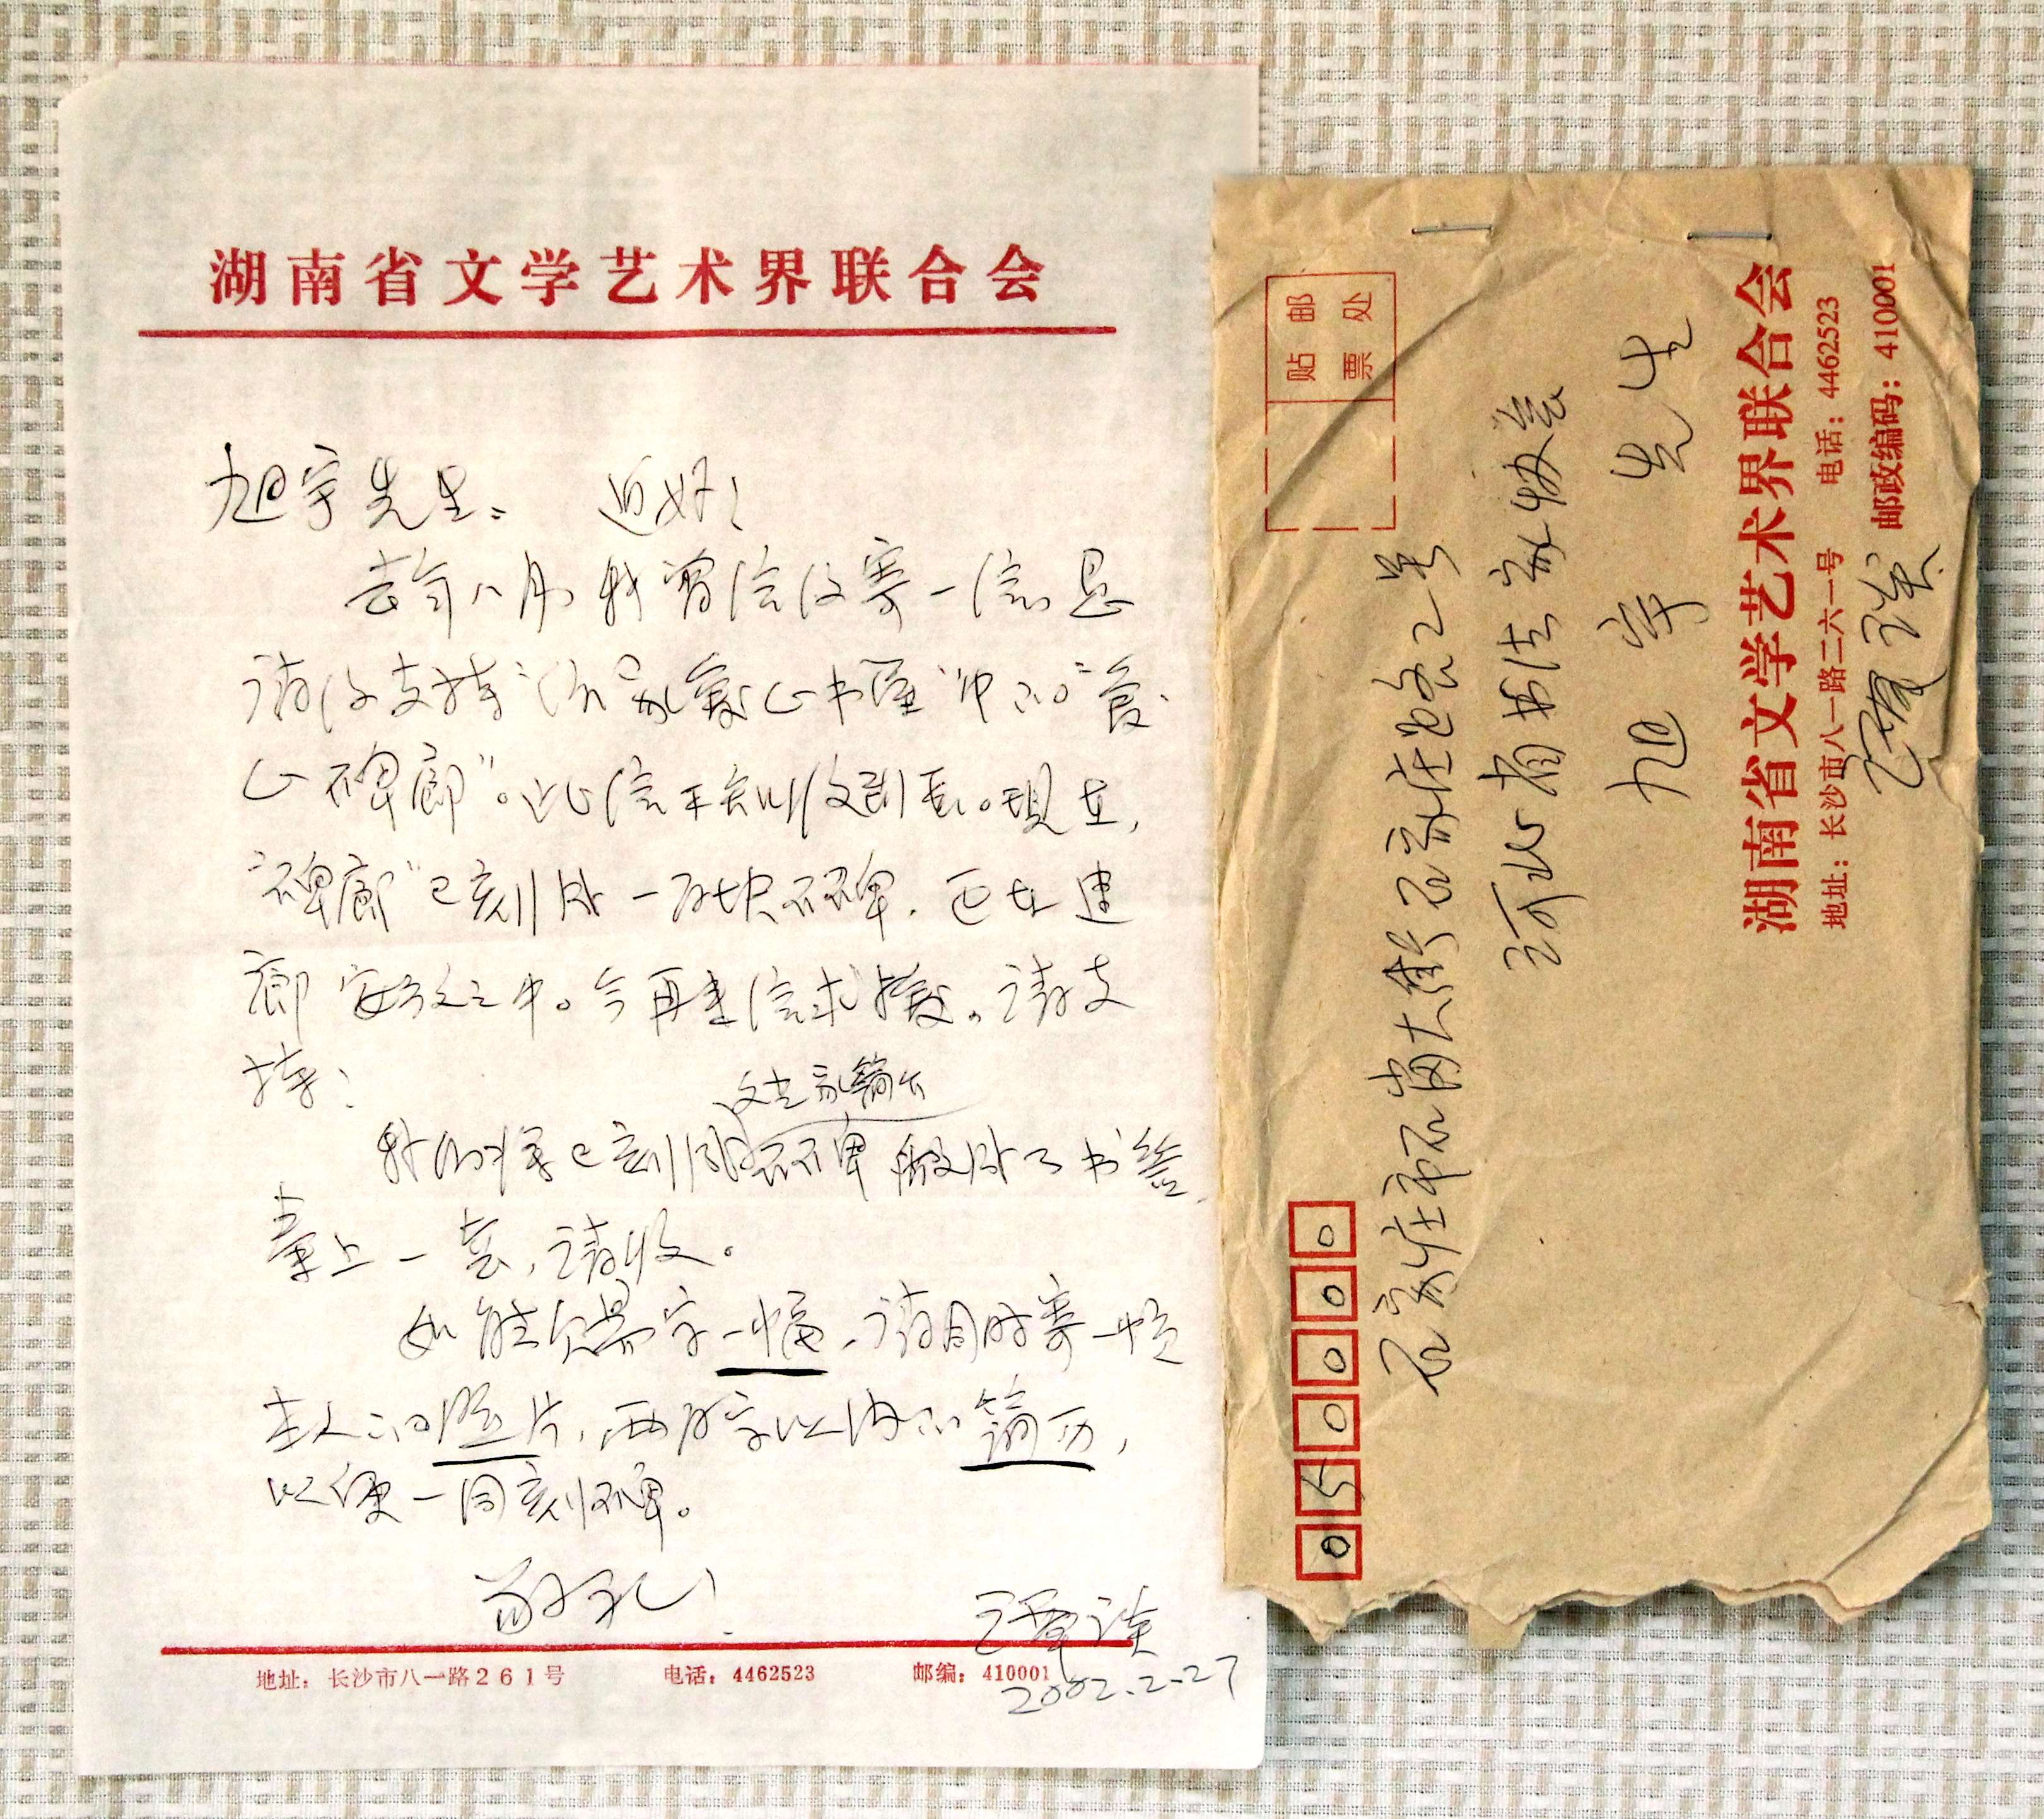 湖南省文学艺术界联合会
旭宇先生：近好！
去年八月，我曾给你寄一信，恳
请你支持“作家爱心书屋”中的“爱
心碑廊”。此信不知收到否。现在，
“碑廊”已刻出一百块石碑，正在建
廊安放之中。今再去信求援。请支
持！
文艺家简介
我们将已刻成石碑做出了书签，
奉上一套，请收。
如能欠赐字一幅，请同时寄一帧
主人的照片，两百字以内的简历，
以便一同刻碑。
敬礼！
谭谈
地址：长沙市八一路261号 电话：4462523 邮编：410001
2002.2.27
贴邮
票处
050000
石家庄市石岗大街石家庄路2号
河北省书法家协会
旭宇先生
湖南省文学艺术界联合会
地址：长沙市八一路二六一号 电话：4462523
邮政编码：410001
谭谈